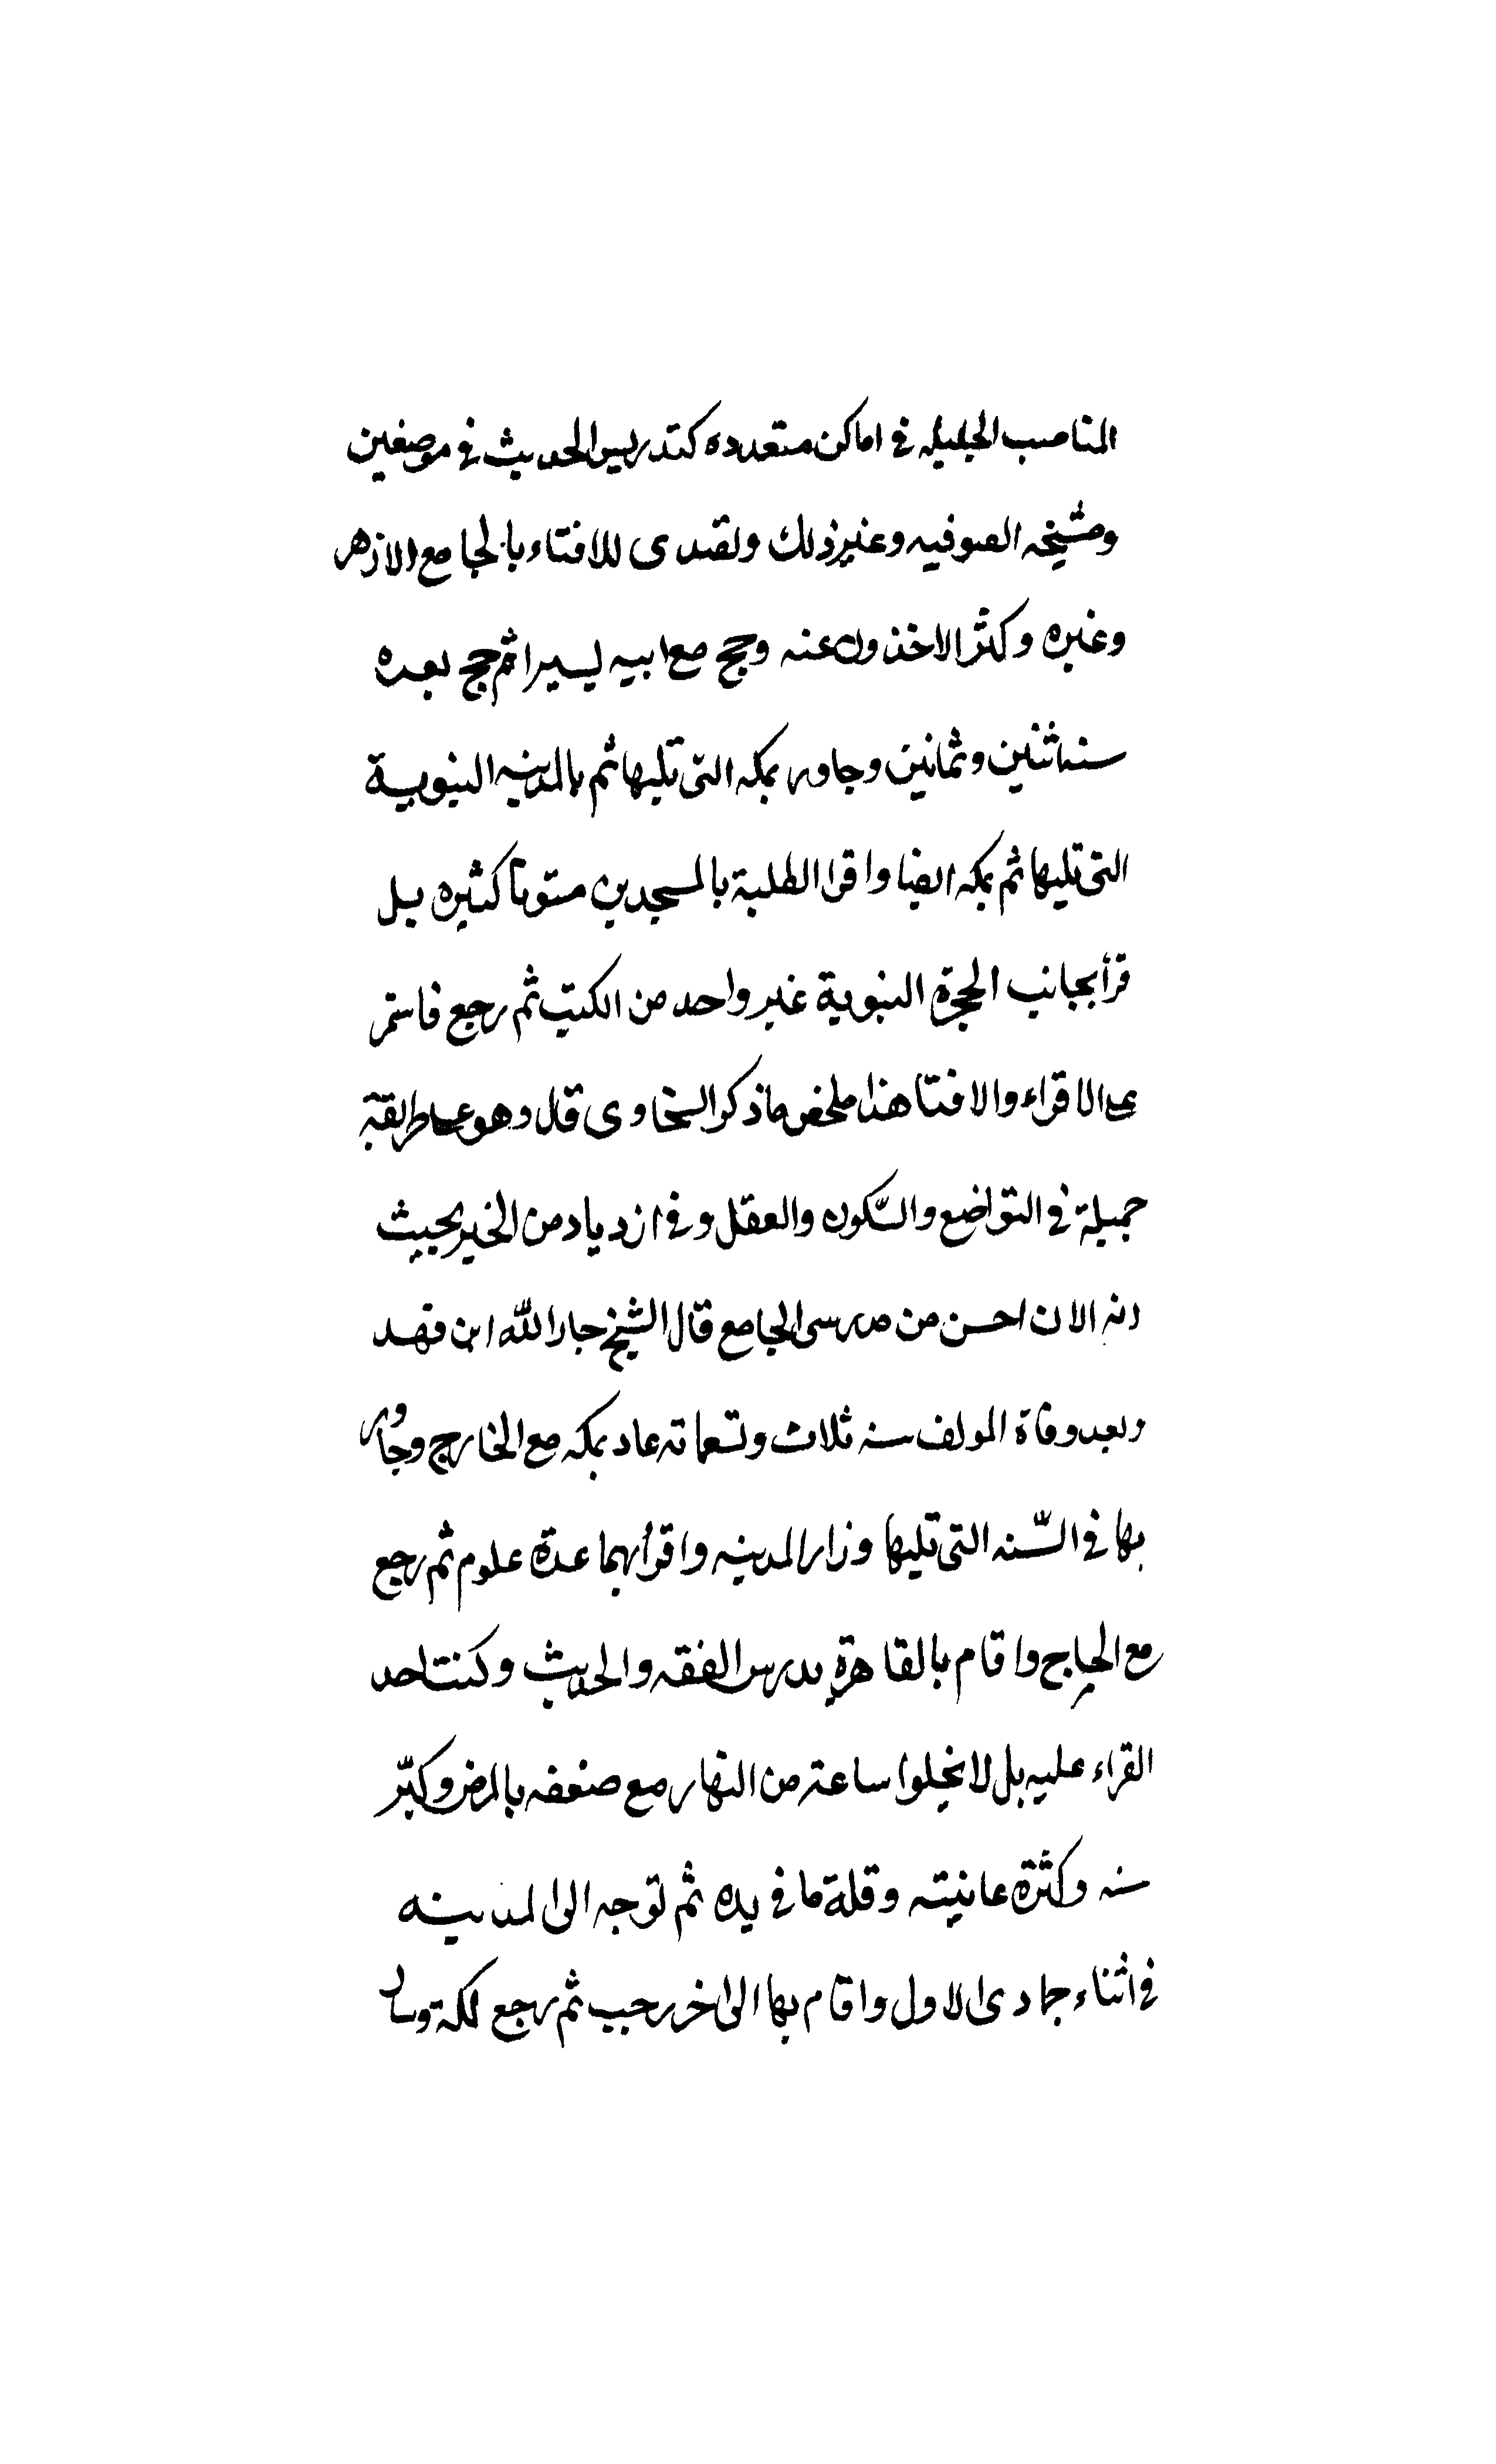 المناصب الجليله في اماكن متعدده كتدريس الحديث في موضعين
ومشيخه الصوفيه وغير ذلك وتصدى للافتاء بالجامع الازهر
وغيره وكثر الاخذون عنه وحج مع ابيه يسيرا ثم حج بعده
سنه اثنين وثمانين وجاور بمكه التى تليها ثم بالمدينه النبوية
التى تليها ثم بمكه ايضا واقرا الطلبة بالمسجدين متونا كثيره بل
قرأ بجانب الحجرة النبوية غير واحد من الكتب ثم رجع فاستمر
على الاقراء والافتا هذا ملخص ما ذكر السخاوى قال وهو على طريقة
جميلة في التواضع والسّكون والعقل وفي ازدياد من الخير بحيث
انه الان احسن من مدرسى الجامع قال الشيخ جار الله ابن فهد
وبعد وفاة المولف سنه ثلاث وتسعمائه عاد بمكه مع الخارج وجاور
بها في السّنه التى تليها وزار المدينه واقرأ بهما عدة علوم ثم رجع
مع الحاج واقام بالقاهرة يدرس الفقه والحديث وكنت احد
القراء عليه بل لا يخلوا ساعة من النهار مع ضعفه بالمرض وكبر
سنه وكثرة عائيته وقلة ما في يده ثم توجه الى المدينه
في اثناء جمادى الاول واقام بها الى اخر رجب ثم رجع لمكة